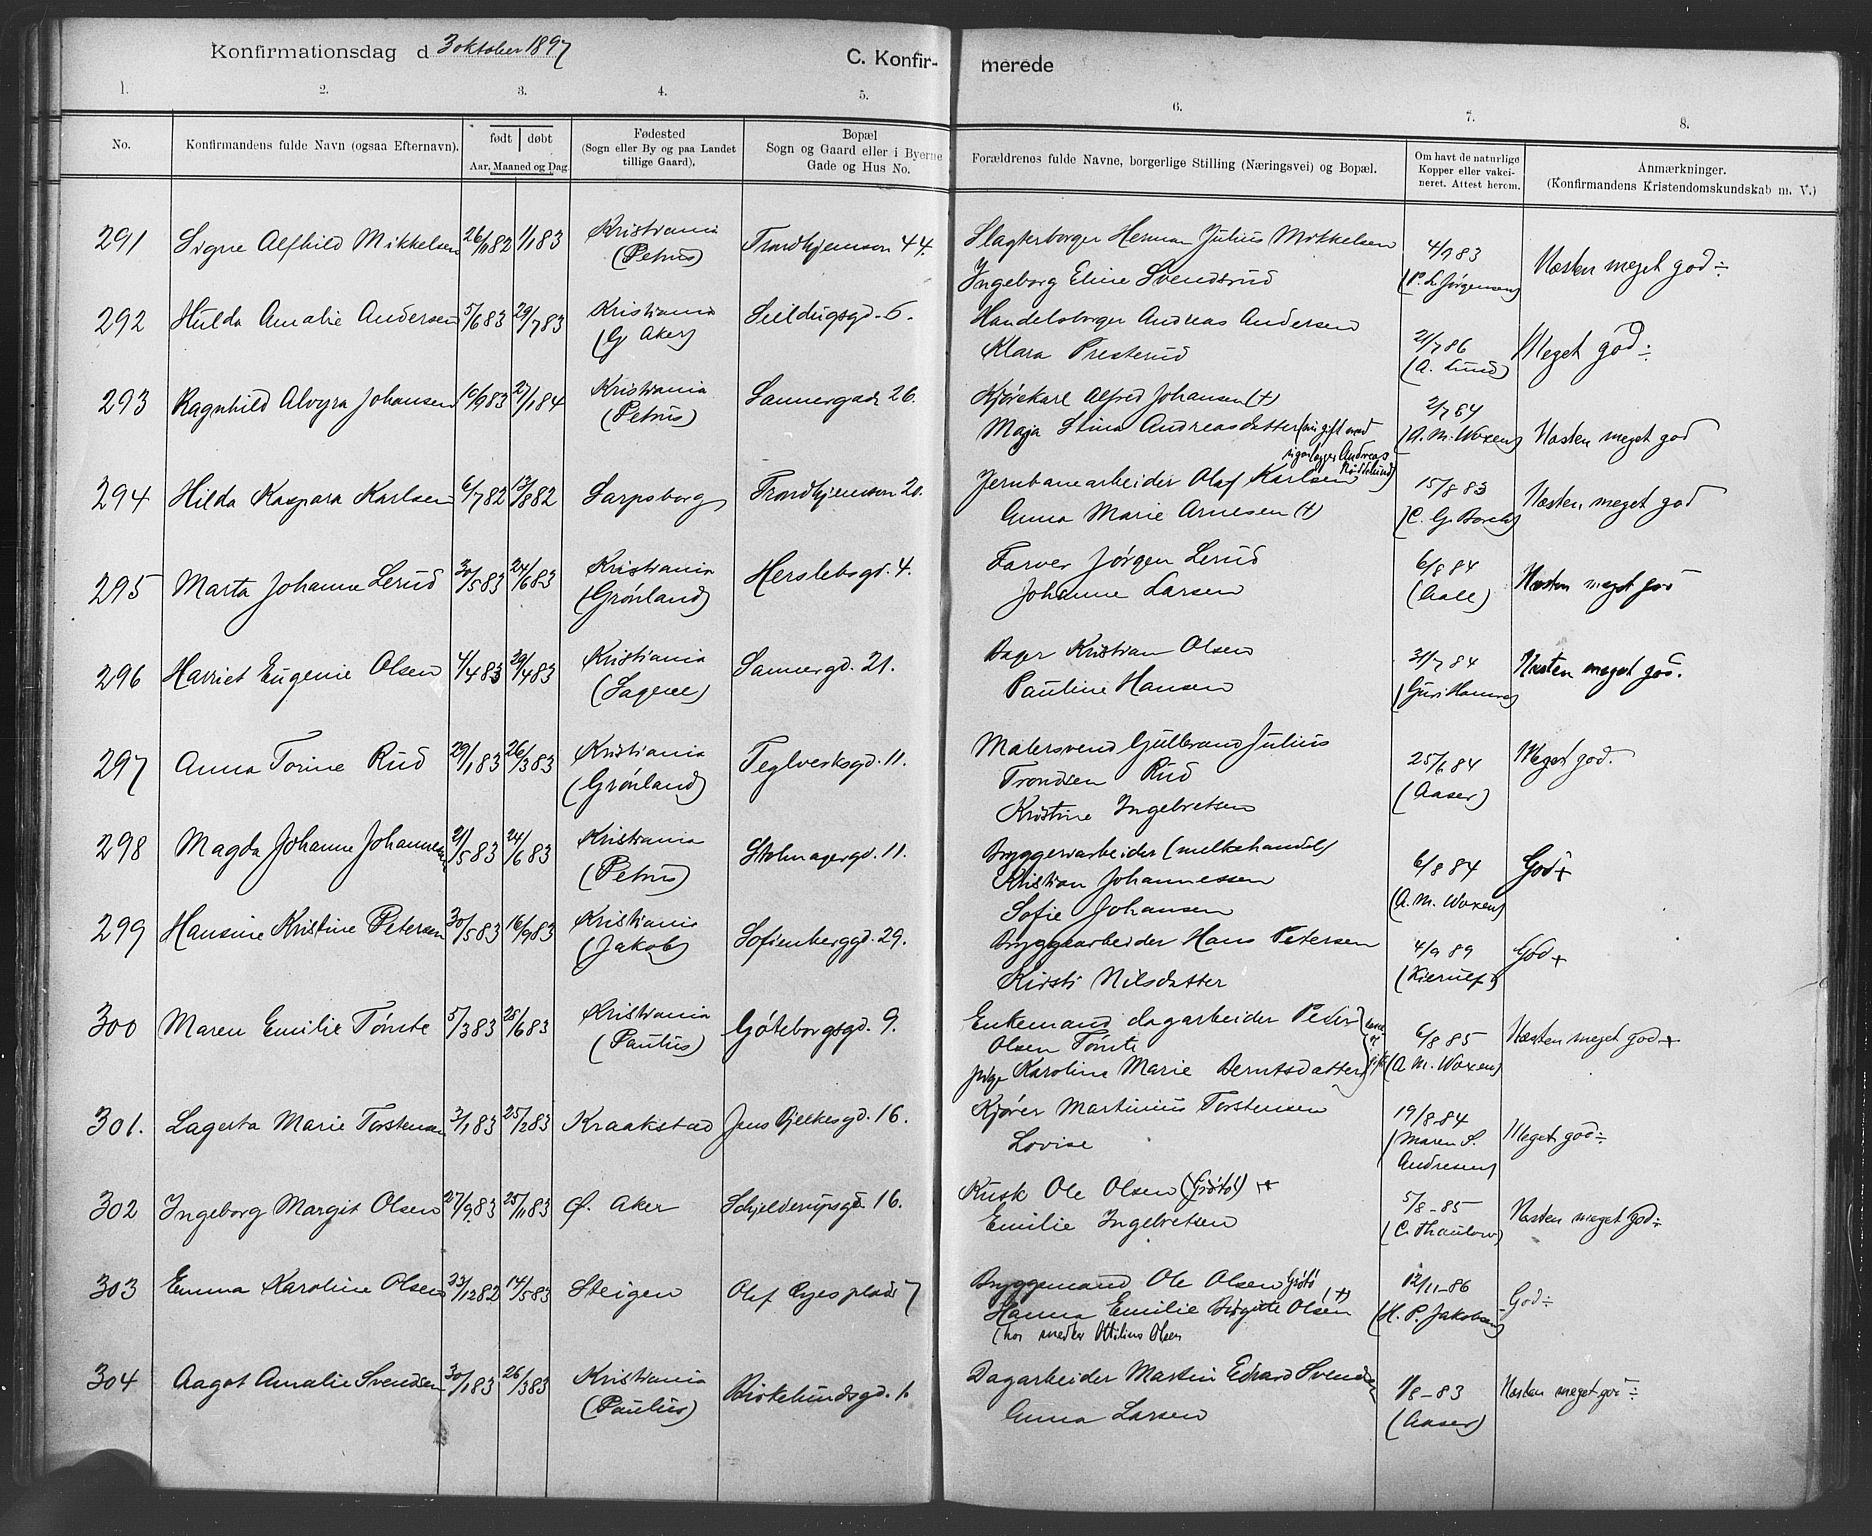 Konfirmationsdag d 3 oktober 1897
C. Konfir- merede
1. 2. 3. 4. 5. 6. 7. 8.
No.
Konfirmandens fulde Navn (ogsaa Efternavn).
født døbt
Aar, Maaned og Dag.
Fødested
(Sogn eller By og paa Landet
tillige Gaard).
Bopæl
Sogn og Gaard eller i Byerne
Gade og Hus No.
Forældrenes fulde Navne, borgerlige Stilling (Næringsvei) og Bopæl.
Om havt de naturlige
Kopper eller vakci-
neret. Attest herom.
Anmærkninger.
(Konfirmandens Kristendomskundskab m. V.)
291 Signe Alfhild Mikkelsen 26/11 82 1/1 83 Kristiania (Petrus) Trondhjemsvn 44.
Slagterborger Herman Julius Mikkelsen
Ingeborg Eline Svendsrud
4/7 83 (P. L. Jørgensen) Næsten meget god ÷
292 Hulda Amalie Andersen 5/6 83 29/7 83 Kristiania (G. Aker) Seildugsgd. 6.
Handelsborger Andreas Andersen
Klara Presterud
21/7 86 (A. Lund) Meget god ÷
293 Ragnhild Alvyra Johansen 10/9 83 27/1 84 Kristiania (Petrus) Sannergade 26.
Kjørekarl Alfred Johansen (+)
Maja Stina Andreasdatter (nu gift med
Andreas
2/7 84 (A. M. Woxen) Næsten meget god
294 Hilda Kaspara Karlsen 6/7 82 13/8 82 Sarpsborg Trondhjemsvn 20.
Jernbanearbeider Olaf Karlsen
Anna Marie Arnesen (+)
15/8 83 (C. G. Borch) Næsten meget god
295 Marta Johanne Lerud 30/5 83 24/6 83 Kristiania (Grønland) Herslebsgd. 4.
Farver Jørgen Lerud
Johanne Larsen
6/8 84 (Aall) Næsten meget god
296 Harriet Eugenie Olsen 4/4 83 29/4 83 Kristiania (Sagene) Sannergd. 21.
Bager Kristian Olsen
Pauline Hansen
31/7 84 (Guri Hamre) Næsten meget god.
297 Anna Torine Rud 29/1 83 26/3 83 Kristiania (Grønland) Teglverksgd. 11.
Malersvend Gulbrand Julius
Trondsen Rud
Kristine Ingebretsen
25/6 84 (Aaser) Meget god.
298 Magda Johanne Johannessen 21/5 83 24/6 83 Kristiania (Petrus) Stolmagergd. 11.
Bryggeriarbeider (melkehandel)
Kristian Johannessen
Sofie Johansen
6/8 84 (A. M. Woxen) God +
299 Hansine Kristine Petersen 30/5 83 16/9 83 Kristiania (Jakob) Sofienberggd. 29.
Bryggearbeider Hans Petersen
Kirsti Nilsdatter
4/9 89 (Kierulf) God +
300 Maren Emilie Tømte 5/3 83 28/6 83 Kristiania (Paulus) Gøteborgsgd. 9.
Enkemand dagarbeider Peder
Olsen Tømte
pige Karoline Marie Berntsdatter
6/8 85 (A. M. Woxen) Næsten meget god +
301. Lagerta Marie Torstensen 3/1 83 25/2 83 Kraakstad Jens Bjelkesgd. 16.
Kjører Martinius Torstensen
Lovise
19/8-84 (Maren S. Andresen) Meget god ÷
302 Ingeborg Margit Olsen 27/9 83 25/11 83 Ø. Aker Schjelderupsgd. 16.
Kusk Ole Olsen (Grøtø)
Emilie Ingebretsen
5/8-85 (C. Thaulow) Næsten meget god ÷
303 Emma Karoline Olsen 23/12 82 14/5 83 Steigen Olaf Ryes plads 7
Bryggemand Ole Olsen Grøtø
Hanna Emilie Birgitte Olsen (+)
(hos snedker Ottilius Olsen
12/11-86 (H. P. Jakobsen) God ÷
304 Aagot Amalie Svendsen 30/1 83 26/3 83 Kristiania (Paulus) Birkelundsgd. 1.
Dagarbeider Martin Edvard Svendsen
Anna Larsen
1/8-83 (Aaser) Næsten meget god ÷